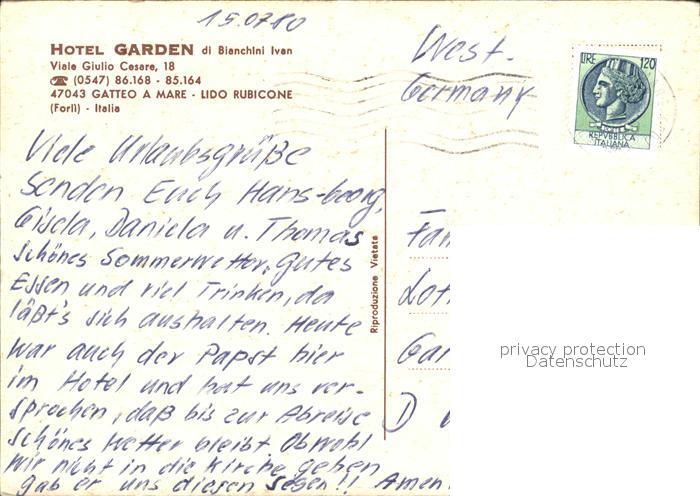 15.0780
HOTEL GARDEN di Bianchini Ivan
Viale Giulio Cesare, 18
☎ (0547) 86.168 - 85.164
47043 GATTEO A MARE - LIDO RUBICONE
(Forlì) - Italia
West.
Germany
LIRE 120
REPVBBLICA
ITALIANA
Viele Urlaubsgrüße
senden Euch Hans-Georg,
Gisela, Daniela u. Thomas
Schönes Sommerwetter, gutes
Essen und viel Trinken, da
läßt's sich aushalten. Heute
war auch der Papst hier
im Hotel und hat uns ver-
sprochen, daß bis zur Abreise
schönes Wetter bleibt Obwohl
wir nicht in die Kirche gehen
gab er uns diesen Segen!! Amen.
Riproduzione Vietata
Fam
Lot
Gar
D
privacy protection
Datenschutz